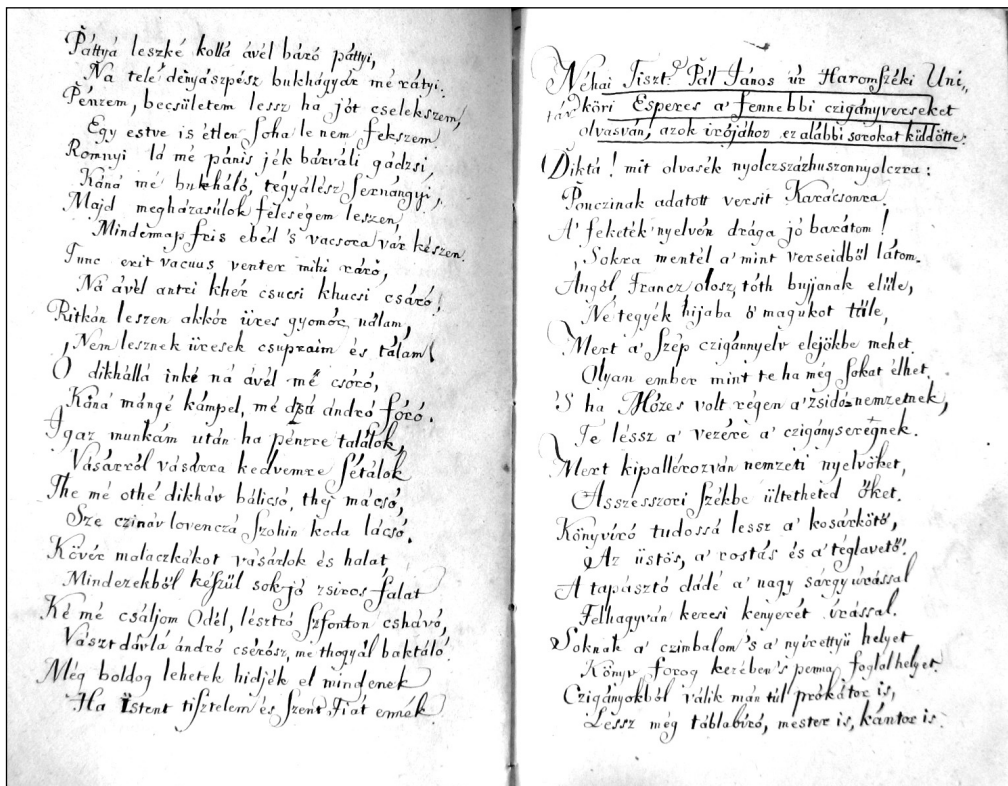 Páttyá leszké kollá ávél báró páttyi,
Na telé denyászpész bukhágyár mé rátyi.
Pénzem, becsületem lessz ha jót cselekszem,
Egy estve is étlen soha le nem fekszem.
Romnyi lá mé pánis jék bárváli gádzsi,
Káná mé bukháló, tégyálész sernángyi,
Majd megházasúlok feleségem leszen
Mindennap fris ebéd 's vacsora vár készen.
Tunc erit vacuus venter mihi ráró,
Ná ávél antri khér csucsi khucsi csáró!
Ritkán leszen akkór üres gyomór nálam,
Nem lesznek üresek csupraim és tálam.
Ó dikhállá inké ná ávél mé csóró,
Káná mángé kámpel, mé dzsá ándró fóró.
Igaz munkám után ha pénzre találok,
Vásárról vásárra kedvemre sétálok
The mé othé dikháv bálicsó, thej mácsó,
Sze czináv lovenczá szohin koda lácsó.
Kövér malaczkákot vásárlok és halat
Mindezekből készül sok jó zsiros falat
Ké mé csáljom Odél, lésztró szfonton cshávó,
Vászt dávlá ándró cserósz, me thogyál baktáló.
Még boldog lehetek hidjék el mindenek
Ha Istent tisztelem és szent Fiat ennék.
Néhai Tiszt. Pál János úr Haromszéki Uni„
táriusköri Esperes a' fennebbi czigányverseket
olvasván, azok irójához ez alábbi sorokat küldötte:
Diktá! mit olvasék nyolczszázhuszonnyolczra:
Ponczinak adatott versit Karácsonra.
A' feketék nyelvén drága jó barátom!
Sokra mentél a' mint verseidből látom.
Ángol Francz olosz, tóth bujjanak elüle,
Né tegyék hijaba ő magukot tüle,
Mert a' szép czigánnyelv elejökbe mehet
Olyan ember mint te ha még sokat élhet.
'S ha Mózes volt régen a' zsidó nemzetnek,
Te léssz a' vezére a' czigányseregnek.
Mert kipallérozván nemzeti nyelvöket,
Asszesszori székbe ültetheted őket.
Könyvíró tudossá lessz a' kosárkötő,
Az üstös, a' rostás és a' téglavető!
A tapásztó dádé a' nagy sárgyúrással
Felhagyván keresi kenyerét írással.
Soknak a' czimbalom 's a' nyírettyü helyet
Könyv forog kezében 's penna foglol helyet
Czigányokból válik mán túl prókátor is,
Lessz még táblabíró, mester is, kántor is.